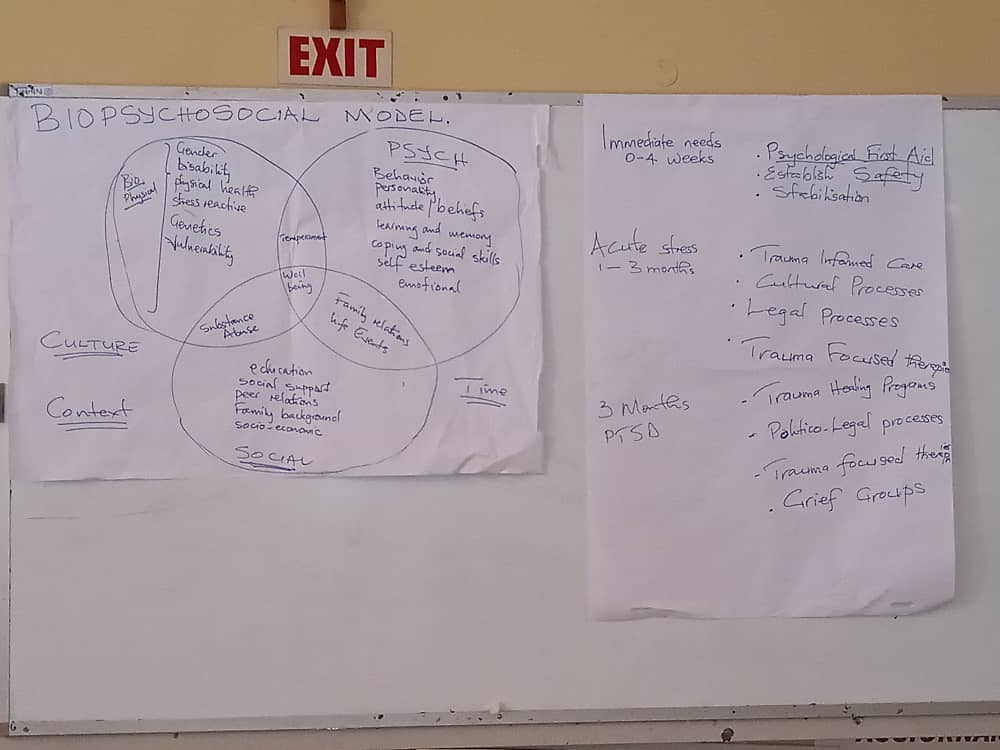 EXIT
BIOPSYCHOSOCIAL MODEL.
Bio
Physical
Gender
Disability
physical health
stress reactive
Genetics
Vulnerability
PSYCH
Behavior
personality
attitude/beliefs
learning and memory
coping and social skills
self esteem
emotional
Temperament
Well
being
Substance
Abuse
Family relations
Life Events
education
social support
peer relations
Family background
socio-economic
SOCIAL
CULTURE
Context
Time
Immediate needs
0-4 weeks
. Psychological First Aid
. Establish Safety
. Stabilisation
Acute stress
1-3 months
. Trauma Informed Care
. Cultural Processes
. Legal Processes
. Trauma Focused therapies
3 Months
PTSD
- Trauma Healing Programs
- Politico-Legal processes
- Trauma focused therapies
. Grief Groups